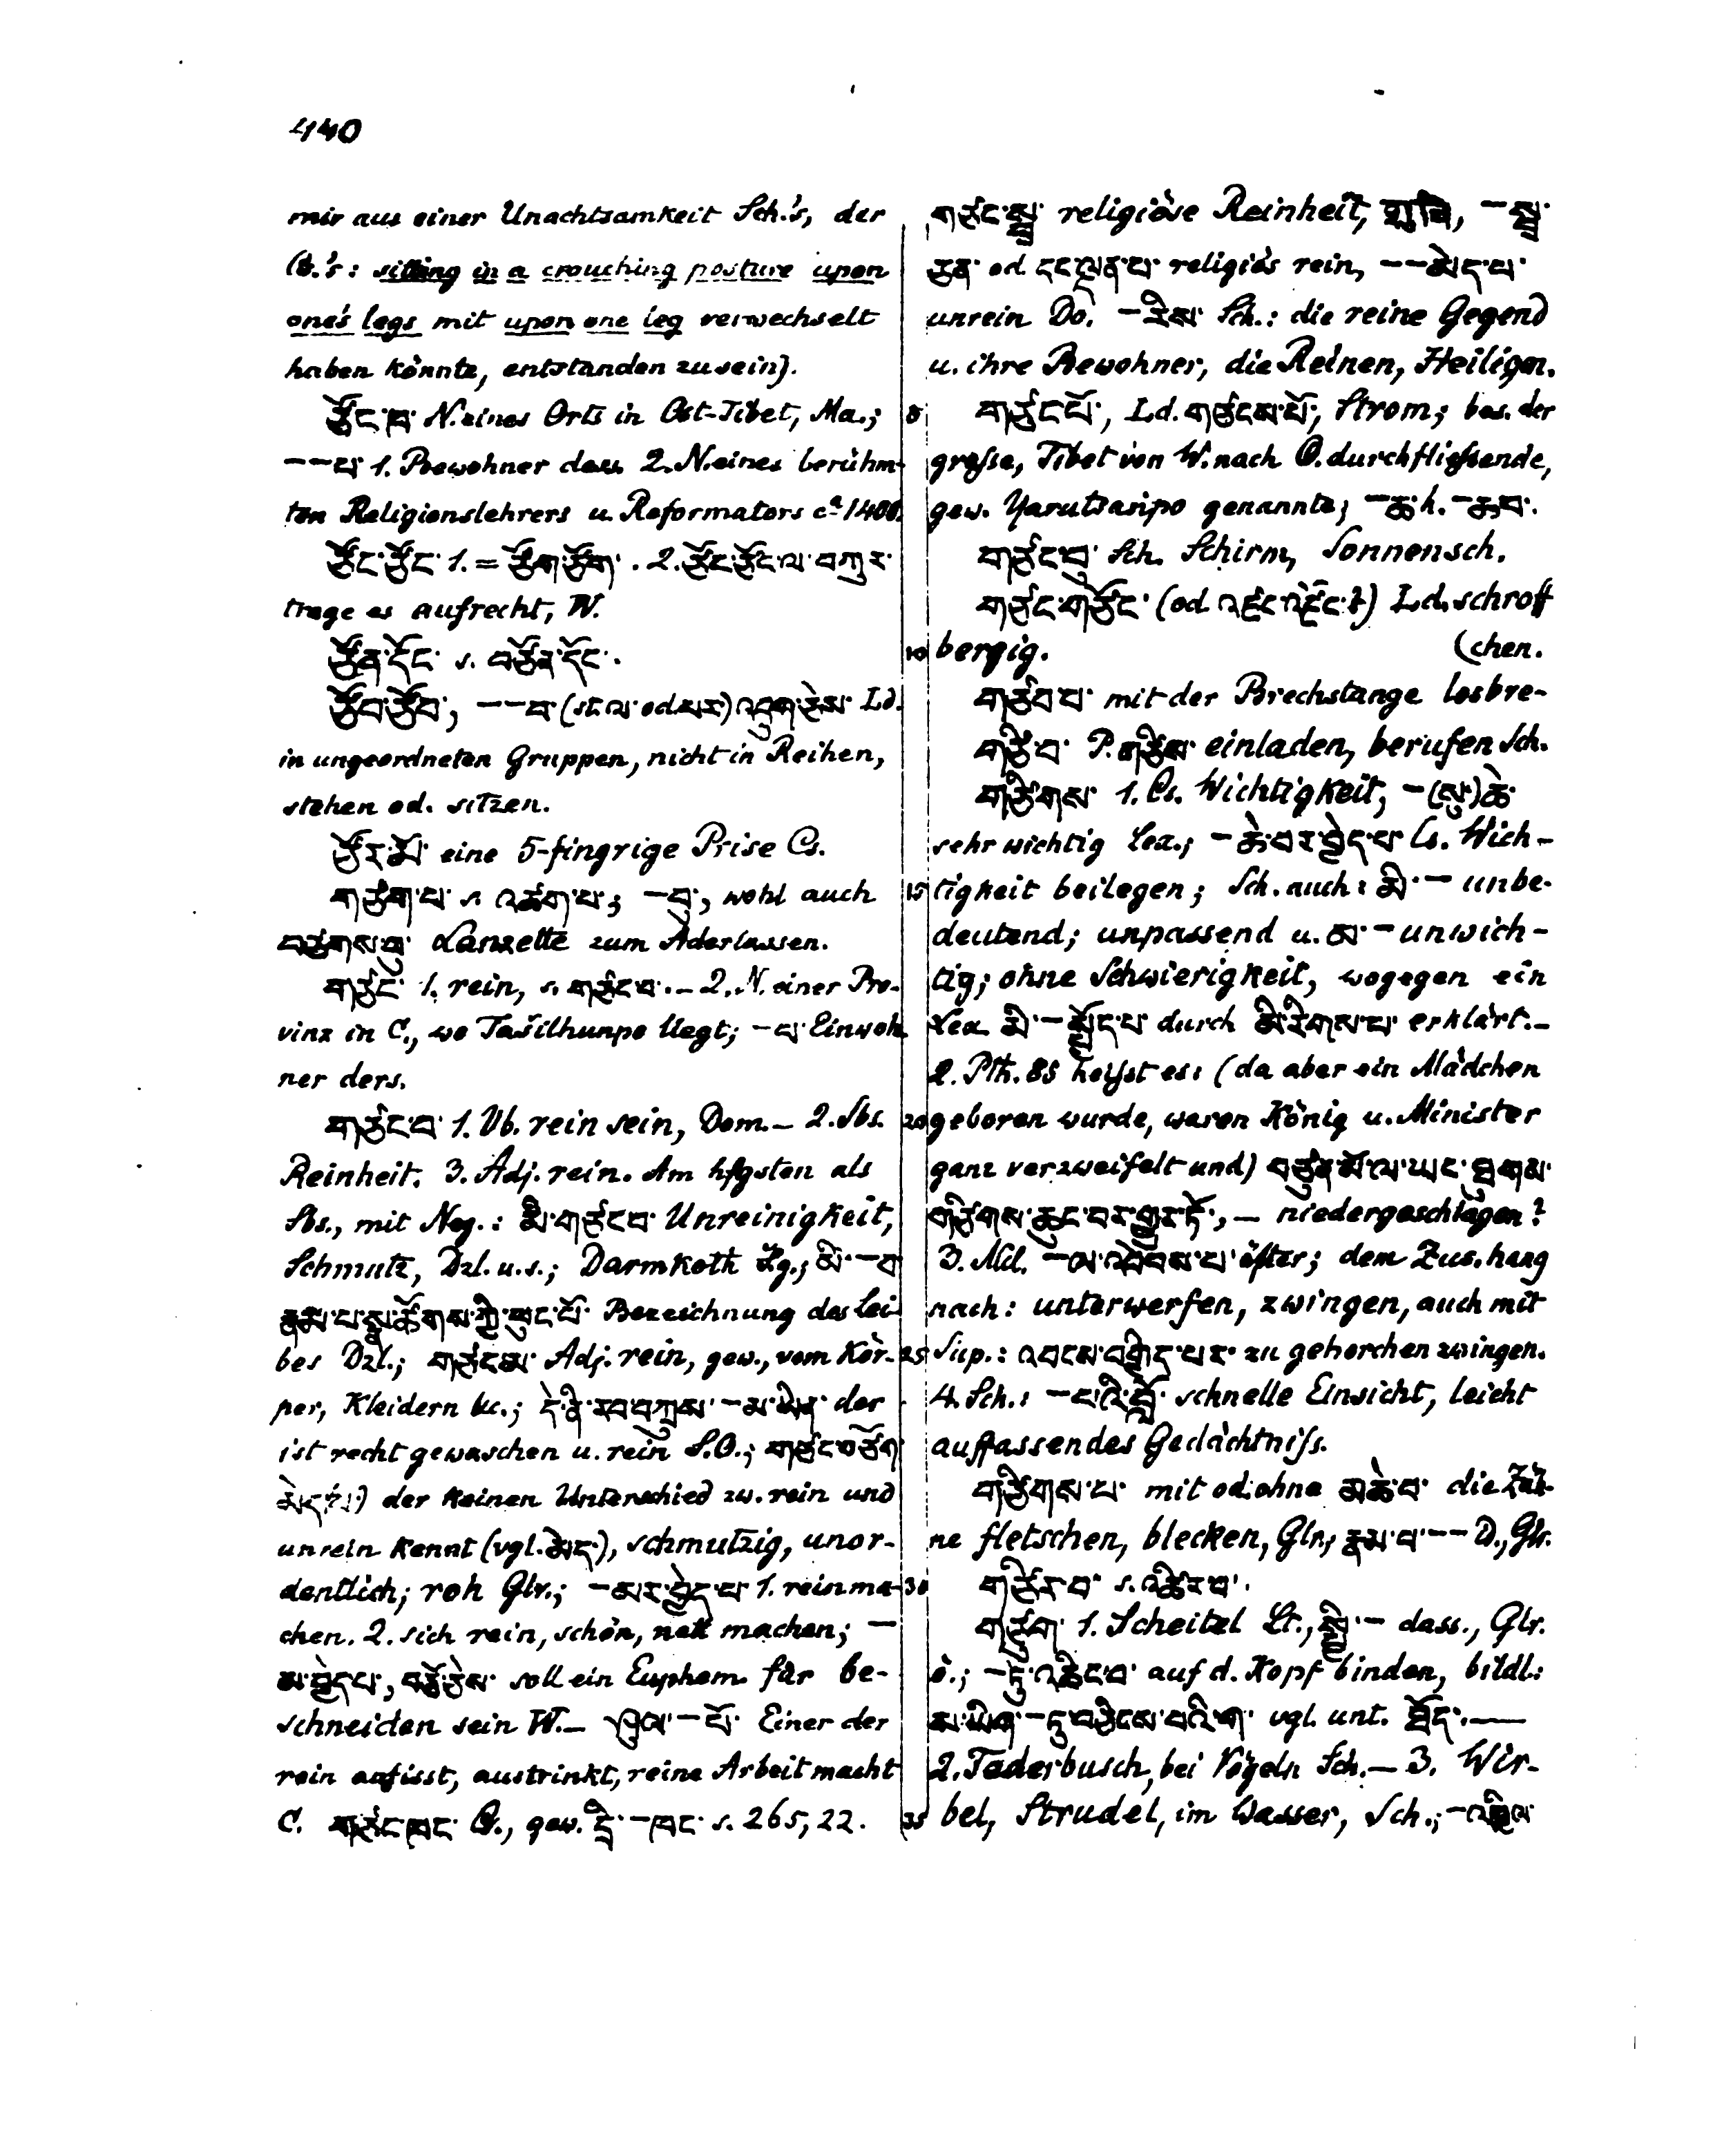 440
mir aus einer Unachtsamkeit Sch.'s, der
Cs.'s: sitting in a crouching posture upon
one's legs mit upon one leg verwechselt
haben könnte, entstanden zu sein).
ཙོང་ཁ་ N. eines Orts in Ost-Tibet, Ma.;
——པ་ 1. Bewohner dess. 2. N. eines berühm-
ten Religionslehrers u. Reformators ca 1400.
ཙོང་ཙོང་ 1. = ཙོག་ཙོག་. 2. ཙོང་ཙོང་ལ་བཀུར་
trage es aufrecht, W.
ཙོན་དོང་ s. བཙོན་དོང་.
ཙོབ་ཙོབ་, ——བ་ (st. ལ་ od. པར་) Ld.
in ungeordneten Gruppen, nicht in Reihen,
stehen od. sitzen.
ཙོར་མོ་ eine 5-fingrige Prise Cs.
གཙག་པ་ s. འཚག་པ་; —བུ་, wohl auch
བཙགས་བུ་ Lanzette zum Aderlassen.
གཙང་ 1. rein, s. གཙང་བ་. — 2. N. einer Pro-
vinz in C., wo Tašilhunpo liegt; —པ་ Einwoh-
ner ders.
གཙང་བ་ 1. Vb. rein sein, Dom. — 2. Sbs.
Reinheit. 3. Adj. rein. Am hfgsten als
Sbs., mit Neg.: མི་གཙང་བ་ Unreinigkeit,
Schmutz, Dzl. u. s.; Darmkoth Lg.; མི་—བ་
རྣམ་པ་སྣ་ཚོགས་ཀྱི་ཕུང་པོ་ Bezeichnung des Lei-
bes Dzl.; གཙང་མ་ Adj. rein, gew., vom Kör-
per, Kleidern &c.; དེ་ནི་རབ་བཀྲུས་—མ་ཡིན་ der
ist recht gewaschen u. rein S.O.; གཙང་བཙོག་
མེད་ der keinen Unterschied zw. rein und
unrein kennt (vgl. མེད་), schmutzig, unor-
dentlich; roh Glr.; —མར་བྱེད་པ་ 1. rein ma-
chen. 2. sich rein, schön, nett machen; —
མ་བྱེད་པ་, soll ein Euphem. für be-
schneiden sein W. — —པོ་ Einer der
rein aufisst, austrinkt, reine Arbeit macht
C. གཙང་ཁང་ Cs., gew. དྲི་—ཁང་ s. 265, 22.
གཙང་སྦྲ་ religiöse Reinheit, —སྦྲ་
ཅན་ od. དང་ལྡན་པ་ religiös rein, ——མེད་པ་
unrein Do. —རིས་ Sch.: die reine Gegend
u. ihre Bewohner, die Reinen, Heiligen.
གཙང་པོ་, Ld. གཙངས་པོ་, Strom; bes. der
grosse, Tibet von W. nach O. durchfliessende,
gew. Yarutsanpo genannte; —ཆ་ h. —ཆབ་.
གཙང་བུ་ Sch. Schirm, Sonnensch.
གཙང་གཙོང་ (od. འཛང་འཛོང་?) Ld. schroff
bergig. (chen.
གཙབ་པ་ mit der Brechstange losbre-
གཙི་བ་ P. གཙིས་ einladen, berufen Sch.
གཙིགས་ 1. Cs. Wichtigkeit, —(སུ་)ཆེ་
sehr wichtig Lex.; —ཆེ་བར་བྱེད་པ་ Cs. Wich-
tigkeit beilegen; Sch. auch: མི་— unbe-
deutend; unpassend u. མ་— unwich-
tig; ohne Schwierigkeit, wogegen ein
Lex. མི་—སྤྱོད་པ་ durch མི་རིགས་པ་ erklärt. —
2. Pth. 85 heisst es: (da aber ein Mädchen
geboren wurde, waren König u. Minister
ganz verzweifelt und) བཙུན་མོ་ལ་ཡང་ཐུགས་
གཙིགས་ཆུང་བར་གྱུར་ཏོ་, — niedergeschlagen?
3. Mil. —ལ་འབེབས་པ་ öfter; dem Zus. hang
nach: unterwerfen, zwingen, auch mit
Sup.: འབངས་བགྱིད་པར་ zu gehorchen zwingen.
4. Sch.: —པའི་བློ་ schnelle Einsicht, leicht
auffassendes Gedächtniss.
གཙིགས་པ་ mit od. ohne མཆེ་བ་ die Zäh-
ne fletschen, blecken, Glr.; རྣམ་པ་—— D., Glr.
གཙིར་བ་ s. འཚིར་བ་.
གཙུག་ 1. Scheitel Lt., སྤྱི་— dass., Glr.
ö.; —ཏུ་འཆིང་བ་ auf d. Kopf binden, bildl.:
མ་ཡིན་—ཏུ་བཅིངས་བའི་ག་ vgl. unt. ཐོད་. —
2. Federbusch, bei Vögeln Sch. — 3. Wir-
bel, Strudel, im Wasser, Sch.; —འཁྱིལ་
5
10
15
20
25
30
35